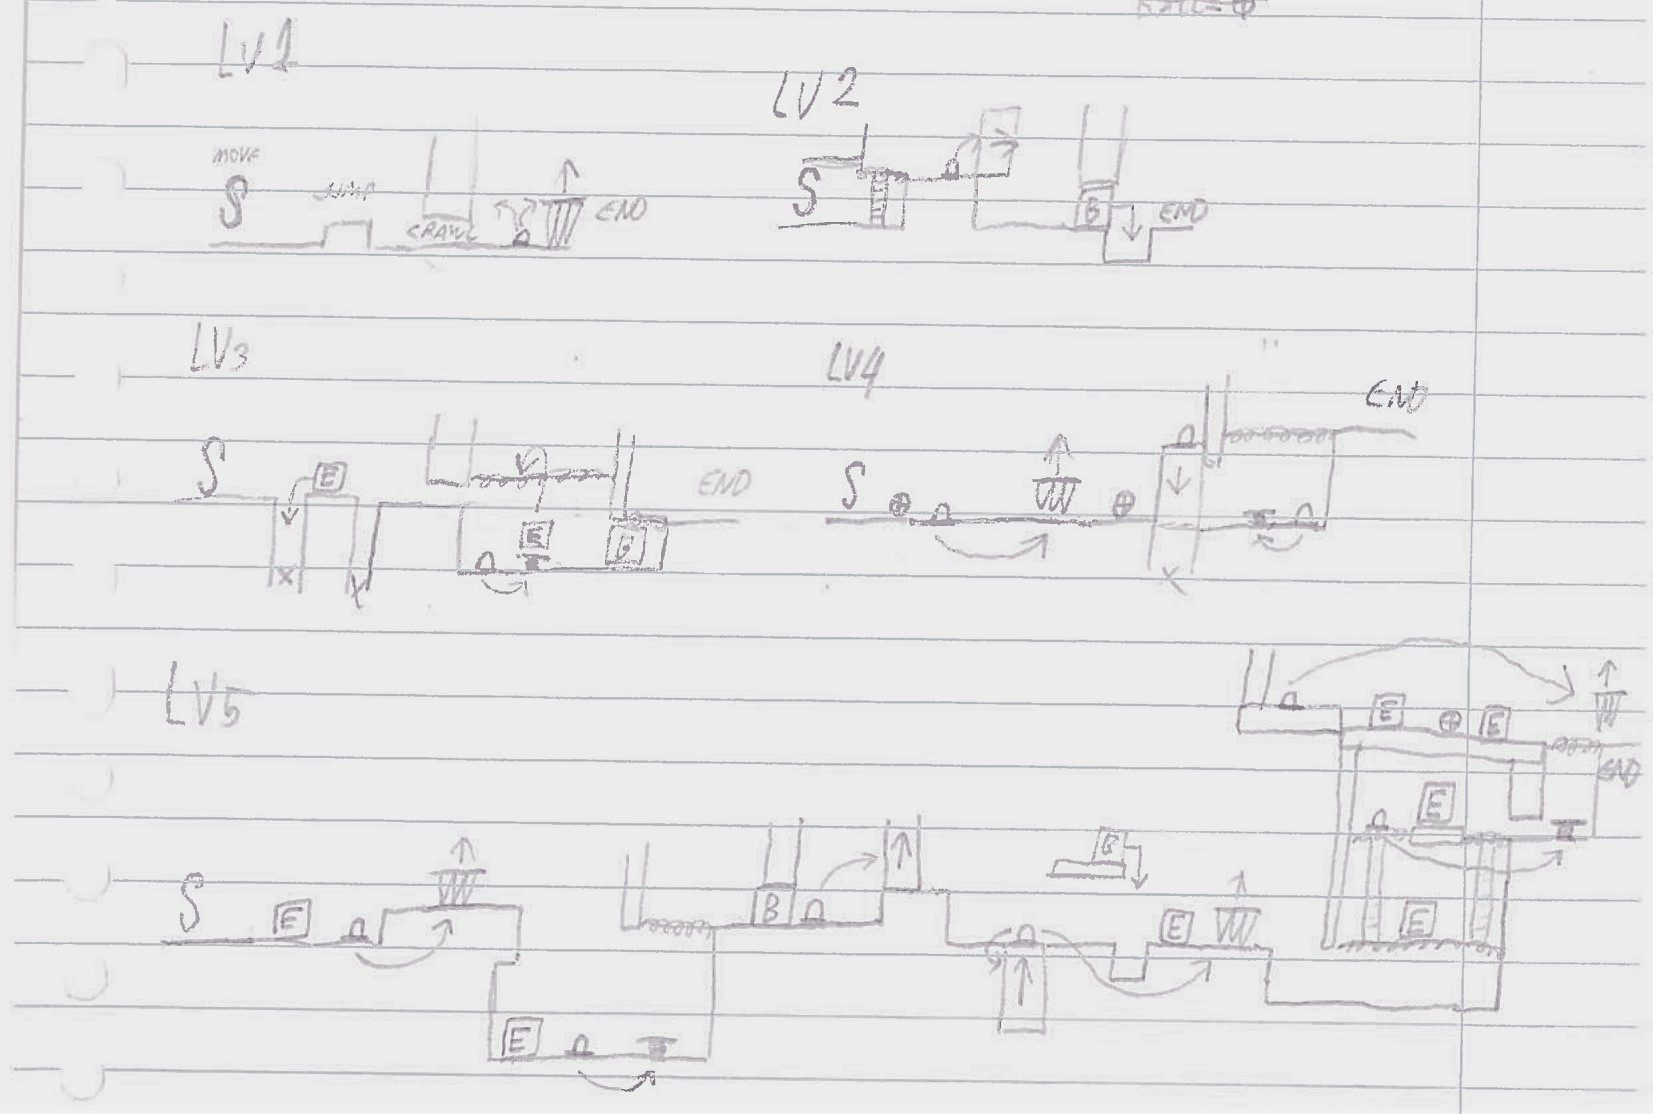 LV1
LV2
MOVE
S
JUMP
CRAWL
END
S
B
END
LV3
LV4
S
E
E
B
END
S
END
LV5
S
E
E
B
B
E
E
E
E
E
END